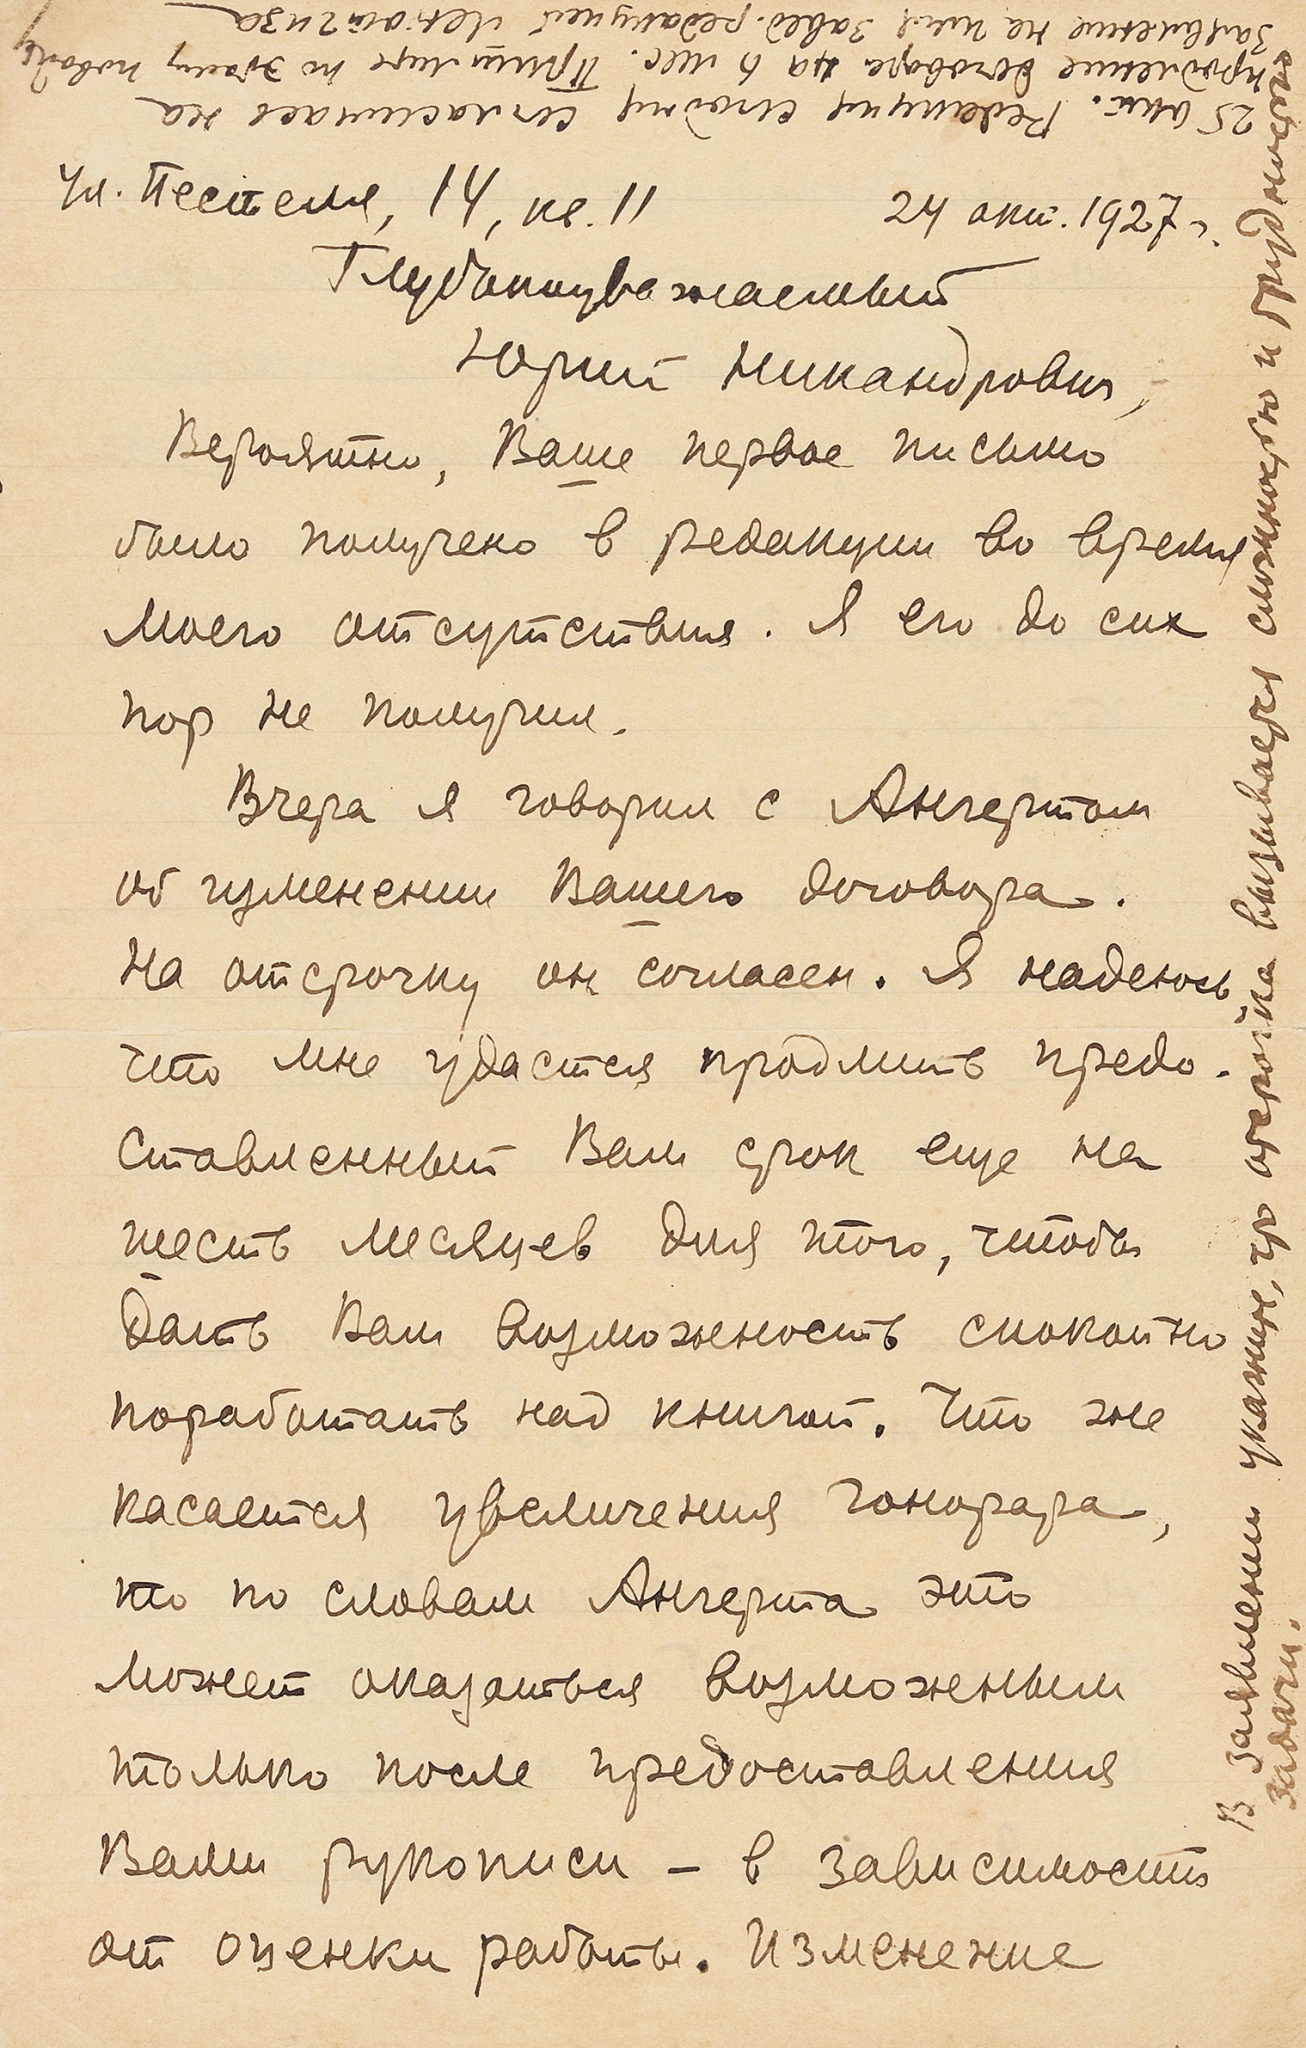 25 окт. Редакция сегодня согласилась на
продление договора на 6 мес. Пришлите по этому поводу
заявление на имя завед. редакцией Леноблгиза
ул. Пестеля, 14, кв. 11
24 окт. 1927 г.
Глубокоуважаемый
Юрий Никандрович,
Вероятно, Ваше первое письмо
было получено в редакции во время
моего отсутствия. Я его до сих
пор не получил.
Вчера я говорил с Ангертом
об изменении Вашего договора.
На отсрочку он согласен. Я надеюсь
что мне удастся продлить предо-
ставленный Вам срок еще на
шесть месяцев для того, чтобы
дать Вам возможность спокойно
поработать над книгой. Что же
касается увеличения гонорара,
то по словам Ангерта это
может оказаться возможным
только после предоставления
Вами рукописи – в зависимости
от оценки работы. Изменение
В заявлении укажите, что отсрочка вызывается сложностью и трудностью
задачи.